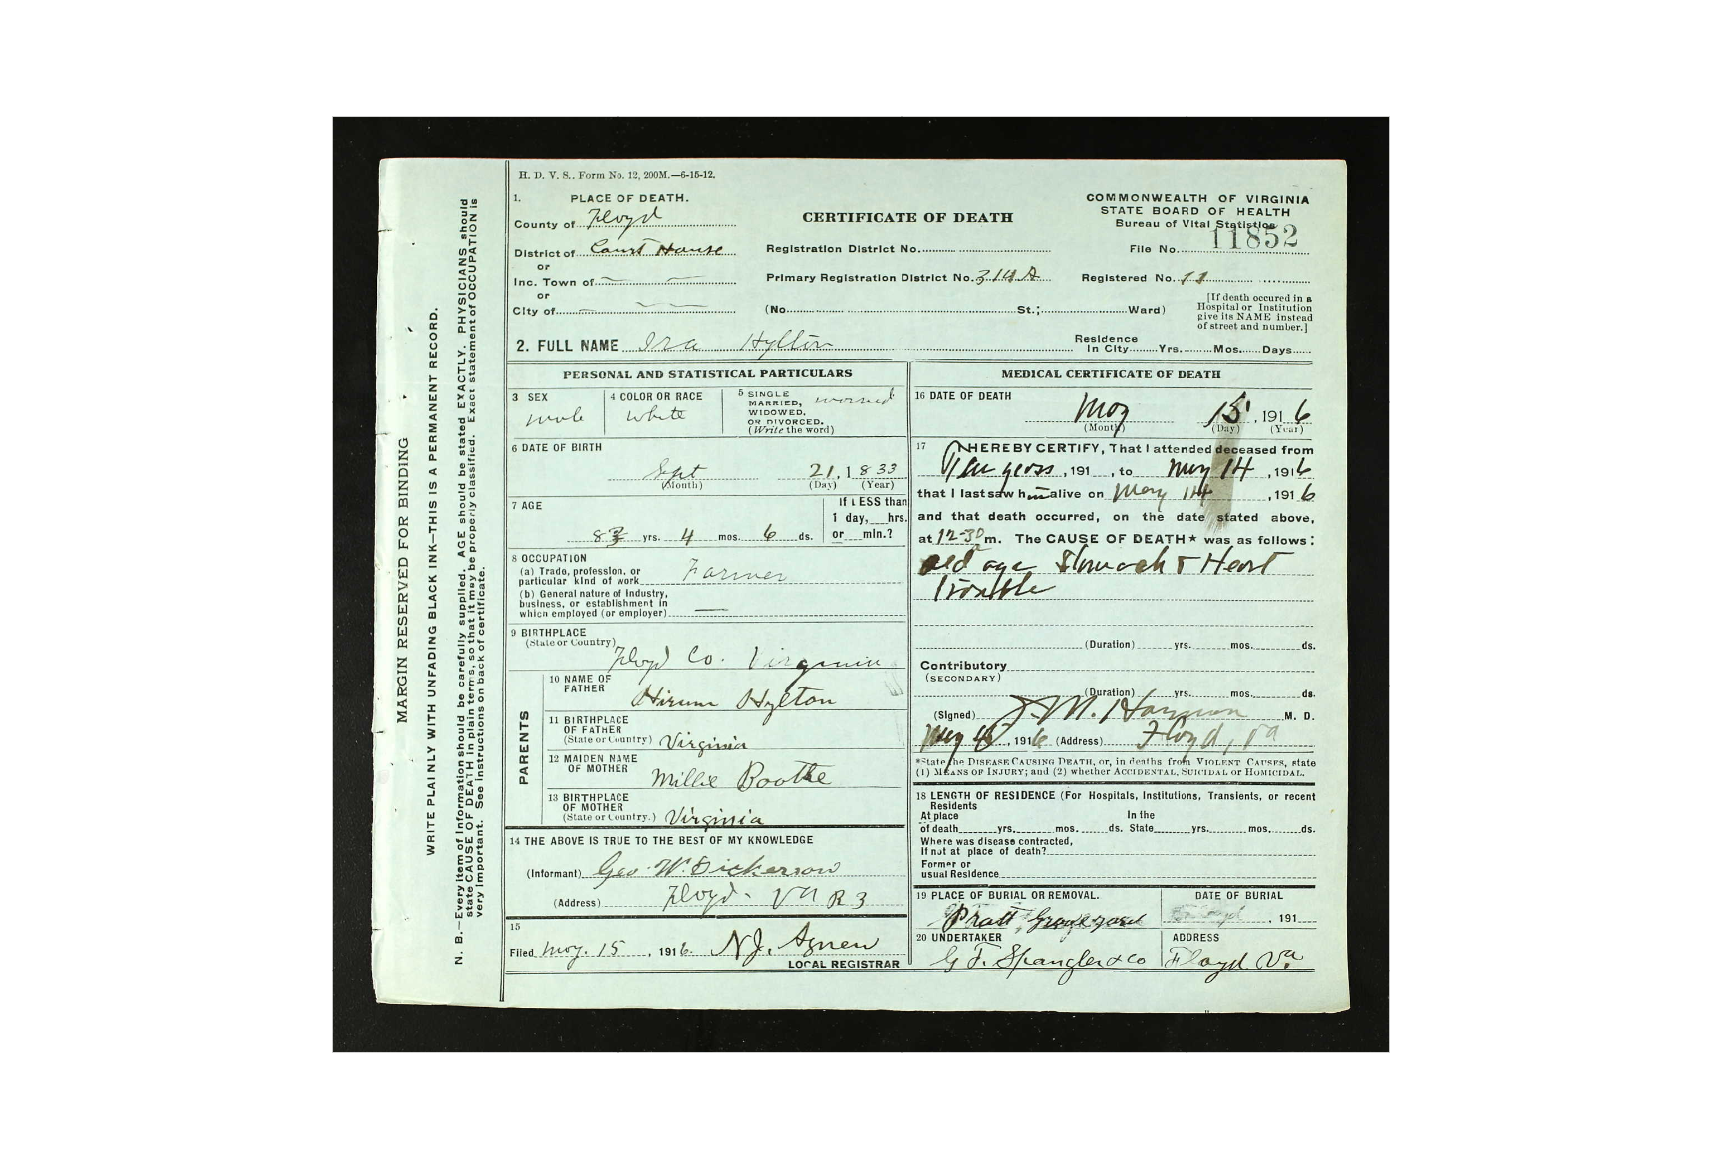 MARGIN RESERVED FOR BINDING
WRITE PLAINLY WITH UNFADING BLACK INK—THIS IS A PERMANENT RECORD.
N. B.—Every item of information should be carefully supplied. AGE should be stated EXACTLY. PHYSICIANS should
state CAUSE OF DEATH in plain terms, so that it may be properly classified. Exact statement of OCCUPATION is
very important. See instructions on back of certificate.
H. D. V. S.. Form No. 12, 200M.—6-15-12.
1. PLACE OF DEATH.
County of Floyd
District of Court House
or
Inc. Town of
or
City of
CERTIFICATE OF DEATH
Registration District No.
Primary Registration District No. 319A
(No. St.; Ward)
COMMONWEALTH OF VIRGINIA
STATE BOARD OF HEALTH
Bureau of Vital Statistics
File No. 11852
Registered No. 11
[If death occured in a
Hospital or Institution
give its NAME instead
of street and number.]
2. FULL NAME Ira Hylton
Residence
In City Yrs. Mos. Days
PERSONAL AND STATISTICAL PARTICULARS
3 SEX
male
4 COLOR OR RACE
white
5 SINGLE
MARRIED,
WIDOWED,
OR DIVORCED.
(Write the word)
married
6 DATE OF BIRTH
Sept 21, 1833
(Month) (Day) (Year)
7 AGE
83 yrs. 4 mos. 6 ds.
If LESS than
1 day, hrs.
or min.?
8 OCCUPATION
(a) Trade, profession, or
particular kind of work Farmer
(b) General nature of Industry,
business, or establishment in
which employed (or employer) —
9 BIRTHPLACE
(State or Country)
Floyd Co. Virginia
PARENTS
10 NAME OF
FATHER
Hiram Hylton
11 BIRTHPLACE
OF FATHER
(State or Country) Virginia
12 MAIDEN NAME
OF MOTHER
Millie Boothe
13 BIRTHPLACE
OF MOTHER
(State or Country.) Virginia
14 THE ABOVE IS TRUE TO THE BEST OF MY KNOWLEDGE
(Informant) Geo. W. Dickerson
(Address) Floyd. Va R 3
15
Filed May. 15, 1916. N.J. Agnew
LOCAL REGISTRAR
MEDICAL CERTIFICATE OF DEATH
16 DATE OF DEATH
May 15, 1916
(Month) (Day) (Year)
17 I HEREBY CERTIFY, That I attended deceased from
Ten years, 191 , to May 14, 1916
that I last saw him alive on May 14, 1916
and that death occurred, on the date stated above,
at 12-30 m. The CAUSE OF DEATH* was as follows:
old age Stomach & Heart
Trouble
(Duration) yrs. mos. ds.
Contributory
(SECONDARY)
(Duration) yrs. mos. ds.
(Signed) J. M. Harman M. D.
May, 1916 (Address) Floyd, Va
*State the DISEASE CAUSING DEATH, or, in deaths from VIOLENT CAUSES, state
(1) MEANS OF INJURY; and (2) whether ACCIDENTAL, SUICIDAL or HOMICIDAL.
18 LENGTH OF RESIDENCE (For Hospitals, Institutions, Transients, or recent
Residents
At place In the
of death yrs. mos. ds. State yrs. mos. ds.
Where was disease contracted,
If not at place of death?
Former or
usual Residence
19 PLACE OF BURIAL OR REMOVAL.
Pratt Graveyard
DATE OF BURIAL
, 191
20 UNDERTAKER
G F. Spangler & Co
ADDRESS
Floyd Va.